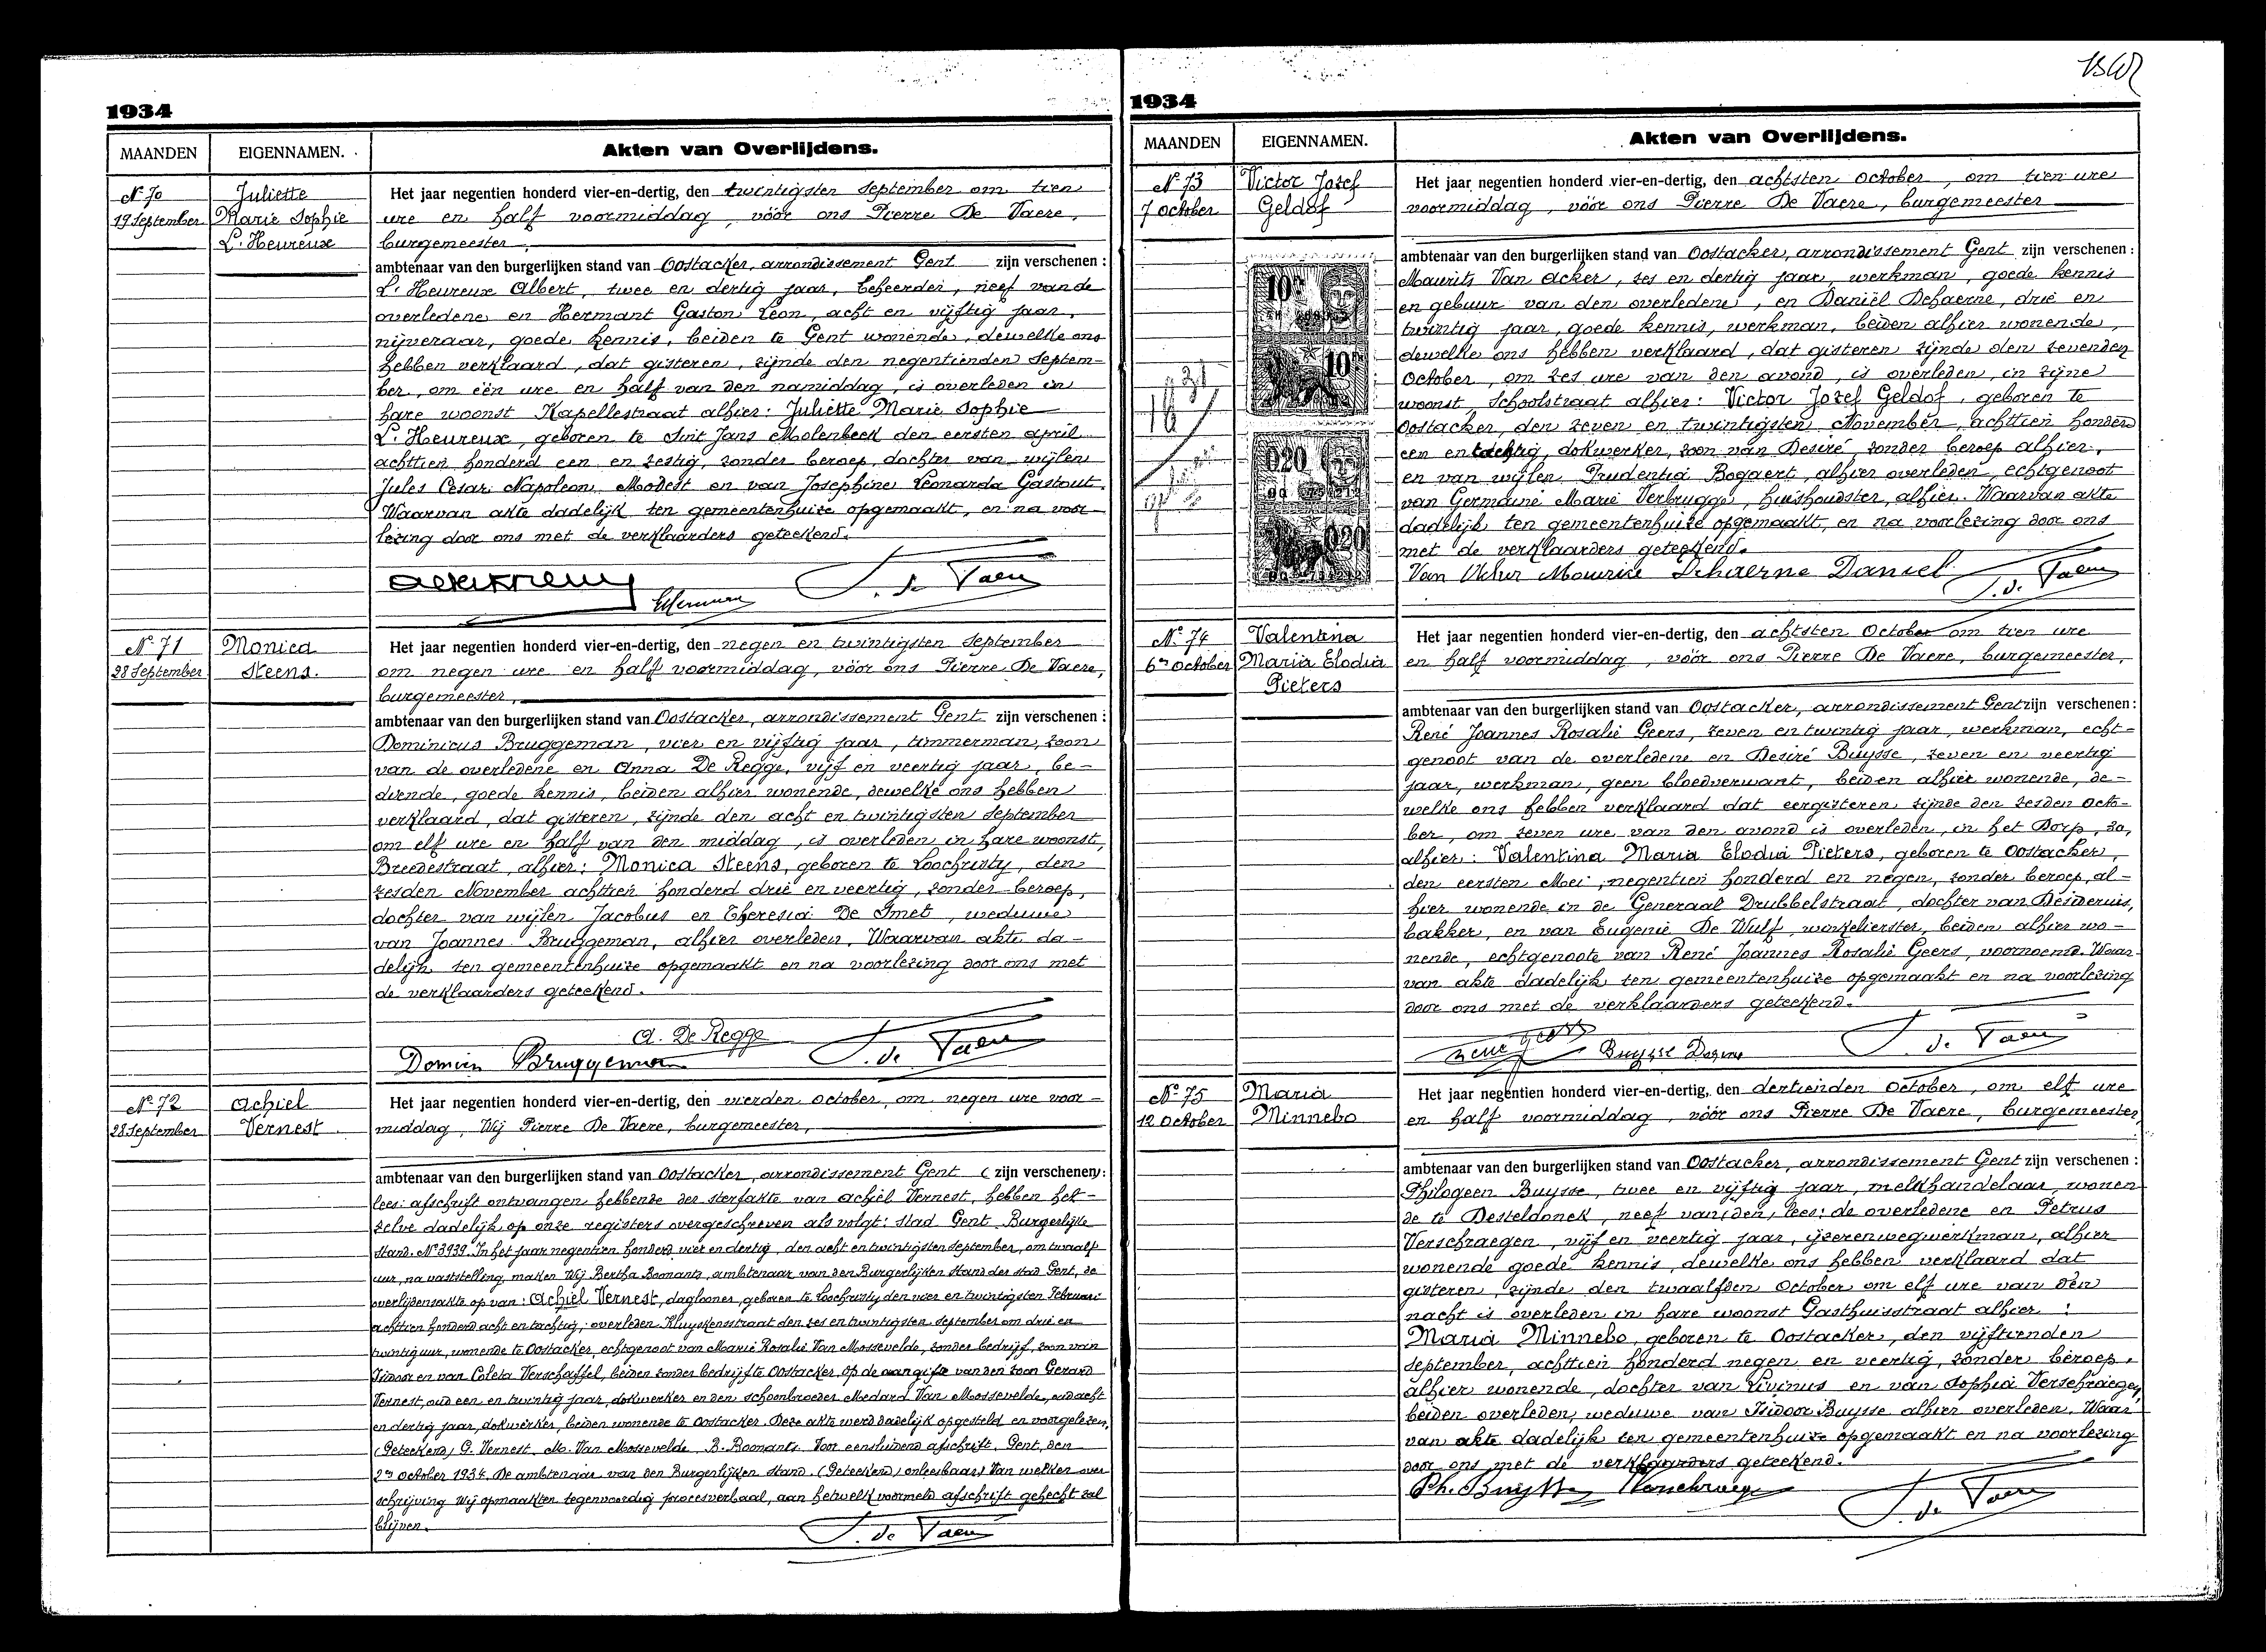 1934
MAANDEN EIGENNAMEN. Akten van Overlijdens.
No 70
19 September
Juliette
Marie Sophie
L'Heureux
Het jaar negentien honderd vier-en-dertig, den twintigsten September om tien
ure en half voormiddag, vóór ons Pierre De Vaere,
burgemeester,
ambtenaar van den burgerlijken stand van Oostacker, arrondissement Gent zijn verschenen:
L'Heureux Albert, twee en dertig jaar, beheerder, neef van de
overledene en Hermant Gaston Leon, acht en vijftig jaar,
nijveraar, goede kennis, beiden te Gent wonende, dewelke ons
hebben verklaard, dat gisteren, zijnde den negentienden Septem-
ber, om één ure en half van den namiddag, is overleden in
hare woonst Kapellestraat alhier: Juliette Marie Sophie
L'Heureux, geboren te Sint Jans Molenbeek den eersten april
achttien honderd een en zestig, zonder beroep, dochter van wijlen
Jules Cesar Napoleon Modest en van Josephine Leonarda Gastout.
Waarvan akte dadelijk ten gemeentenhuize opgemaakt, en na voor-
lezing door ons met de verklaarders geteekend.
P. de Vaere
No 71
28 September
Monica
Steens.
Het jaar negentien honderd vier-en-dertig, den negen en twintigsten September
om negen ure en half voormiddag, vóór ons Pierre De Vaere,
burgemeester,
ambtenaar van den burgerlijken stand van Oostacker, arrondissement Gent zijn verschenen:
Dominicus Bruggeman, vier en vijftig jaar, timmerman, zoon
van de overledene en Anna De Regge, vijf en veertig jaar, be-
diende, goede kennis, beiden alhier wonende, dewelke ons hebben
verklaard, dat gisteren, zijnde den acht en twintigsten September
om elf ure en half van den middag, is overleden in hare woonst,
Breedestraat, alhier: Monica Steens, geboren te Loochristy, den
zesden November achttien honderd drie en veertig, zonder beroep,
dochter van wijlen Jacobus en Theresia De Smet, weduwe
van Joannes Bruggeman, alhier overleden. Waarvan akte da-
delijk ten gemeentenhuize opgemaakt en na voorlezing door ons met
de verklaarders geteekend.
A. De Regge
Domien Bruggeman P. de Vaere
No 72
28 September
Achiel
Vernest
Het jaar negentien honderd vier-en-dertig, den vierden October, om negen ure voor-
middag, Wij Pierre De Vaere, burgemeester,
ambtenaar van den burgerlijken stand van Oostacker, arrondissement Gent (zijn verschenen):
lees: afschrift ontvangen hebbende der sterfakte van Achiel Vernest, hebben het-
zelve dadelijk op onze registers overgeschreven als volgt: Stad Gent. Burgerlijke
stand. No 3939. In het jaar negentien honderd vier en dertig, den acht en twintigsten September, om twaalf
uur, na vaststelling, maken Wij Bertha Boomants, ambtenaar van den Burgerlijken Stand der stad Gent, de
overlijdensakte op van: Achiel Vernest, daglooner, geboren te Loochristy den vier en twintigsten Februari
achttien honderd acht en tachtig, overleden Kluyskensstraat den zes en twintigsten September om drie en
twintig uur, wonende te Oostacker, echtgenoot van Marie Rosalie Van Mossevelde, zonder bedrijf, zoon van
Isidoor en van Coleta Verschaffel, beiden zonder bedrijf te Oostacker. Op de aangifte van den zoon Gerard
Vernest, oud een en twintig jaar, dokwerker en den schoonbroeder Medard Van Mossevelde, oud acht
en dertig jaar, dokwerker, beiden wonende te Oostacker. Deze akte werd dadelijk opgesteld en voorgelezen,
(Geteekend) G. Vernest. M. Van Mossevelde. B. Boomants. Voor eensluidend afschrift, Gent, den
2en October 1934. De ambtenaar van den Burgerlijken Stand. (Geteekend) onleesbaar. Van welken over
schrijving Wij opmaakten tegenvoordig procesverbaal, aan hetwelk voormeld afschrift gehecht zal
blijven.
P. de Vaere
1934
MAANDEN EIGENNAMEN. Akten van Overlijdens.
No 73
7 October
Victor Jozef
Geldof
Het jaar negentien honderd vier-en-dertig, den achtsten October, om tien ure
voormiddag, vóór ons Pierre De Vaere, burgemeester
ambtenaar van den burgerlijken stand van Oostacker, arrondissement Gent zijn verschenen:
Maurits Van Acker, zes en dertig jaar, werkman, goede kennis
en gebuur van den overledene, en Daniël Dehaerne, drie en
twintig jaar, goede kennis, werkman, beiden alhier wonende,
dewelke ons hebben verklaard, dat gisteren zijnde den zevenden
October, om zes ure van den avond, is overleden, in zijne
woonst Schoolstraat alhier: Victor Jozef Geldof, geboren te
Oostacker, den zeven en twintigsten November, achttien honderd
een en tachtig, dokwerker, zoon van Desiré, zonder beroep alhier,
en van wijlen Prudentia Bogaert, alhier overleden, echtgenoot
van Germaine Marie Verbrugge, huishoudster, alhier. Waarvan akte
dadelijk ten gemeentenhuize opgemaakt, en na voorlezing door ons
met de verklaarders geteekend.
Van Acker Maurice Dehaerne Daniel P. de Vaere
10c
10c
020
020
No 74
6en October
Valentina
Maria Elodia
Pieters
Het jaar negentien honderd vier-en-dertig, den achtsten October om tien ure
en half voormiddag, vóór ons Pierre De Vaere, burgemeester,
ambtenaar van den burgerlijken stand van Oostacker, arrondissement Gent zijn verschenen:
René Joannes Rosalie Geers, zeven en twintig jaar, werkman, echt-
genoot van de overledene en Desiré Buysse, zeven en veertig
jaar, werkman, geen bloedverwant, beiden alhier wonende, de-
welke ons hebben verklaard dat eergisteren, zijnde den zesden Octo-
ber, om zeven ure van den avond is overleden, in het Dorp, 30,
alhier: Valentina Maria Elodia Pieters, geboren te Oostacker,
den eersten Mei, negentien honderd en negen, zonder beroep, al-
hier wonende in de Generaal Drubbelstraat, dochter van Desiderius,
bakker, en van Eugenie De Wulf, winkelierster, beiden alhier wo-
nende, echtgenoote van René Joannes Rosalie Geers, voornoemd. Waar-
van akte dadelijk ten gemeentenhuize opgemaakt en na voorlezing
door ons met de verklaarders geteekend.
René Geers Buysse P. de Vaere
No 75
12 October
Maria
Minnebo
Het jaar negentien honderd vier-en-dertig, den dertienden October, om elf ure
en half voormiddag, vóór ons Pierre De Vaere, burgemeester,
ambtenaar van den burgerlijken stand van Oostacker, arrondissement Gent zijn verschenen:
Philogeen Buysse, twee en vijftig jaar, melkhandelaar, wonen-
de te Desteldonck, neef van (den, lees: de overledene en Petrus
Verschraegen, vijf en veertig jaar, ijzerenwegwerkman, alhier
wonende goede kennis, dewelke ons hebben verklaard dat
gisteren, zijnde den twaalfden October om elf ure van den
nacht is overleden in hare woonst Gasthuisstraat alhier:
Maria Minnebo, geboren te Oostacker, den vijftienden
September, achttien honderd negen en veertig, zonder beroep,
alhier wonende, dochter van Livinus en van Sophia Verschraegen,
beiden overleden, weduwe van Isidoor Buysse alhier overleden. Waar-
van akte dadelijk ten gemeentenhuize opgemaakt en na voorlezing
door ons met de verklaarders geteekend.
Ph. Buysse Verschraegen P. de Vaere